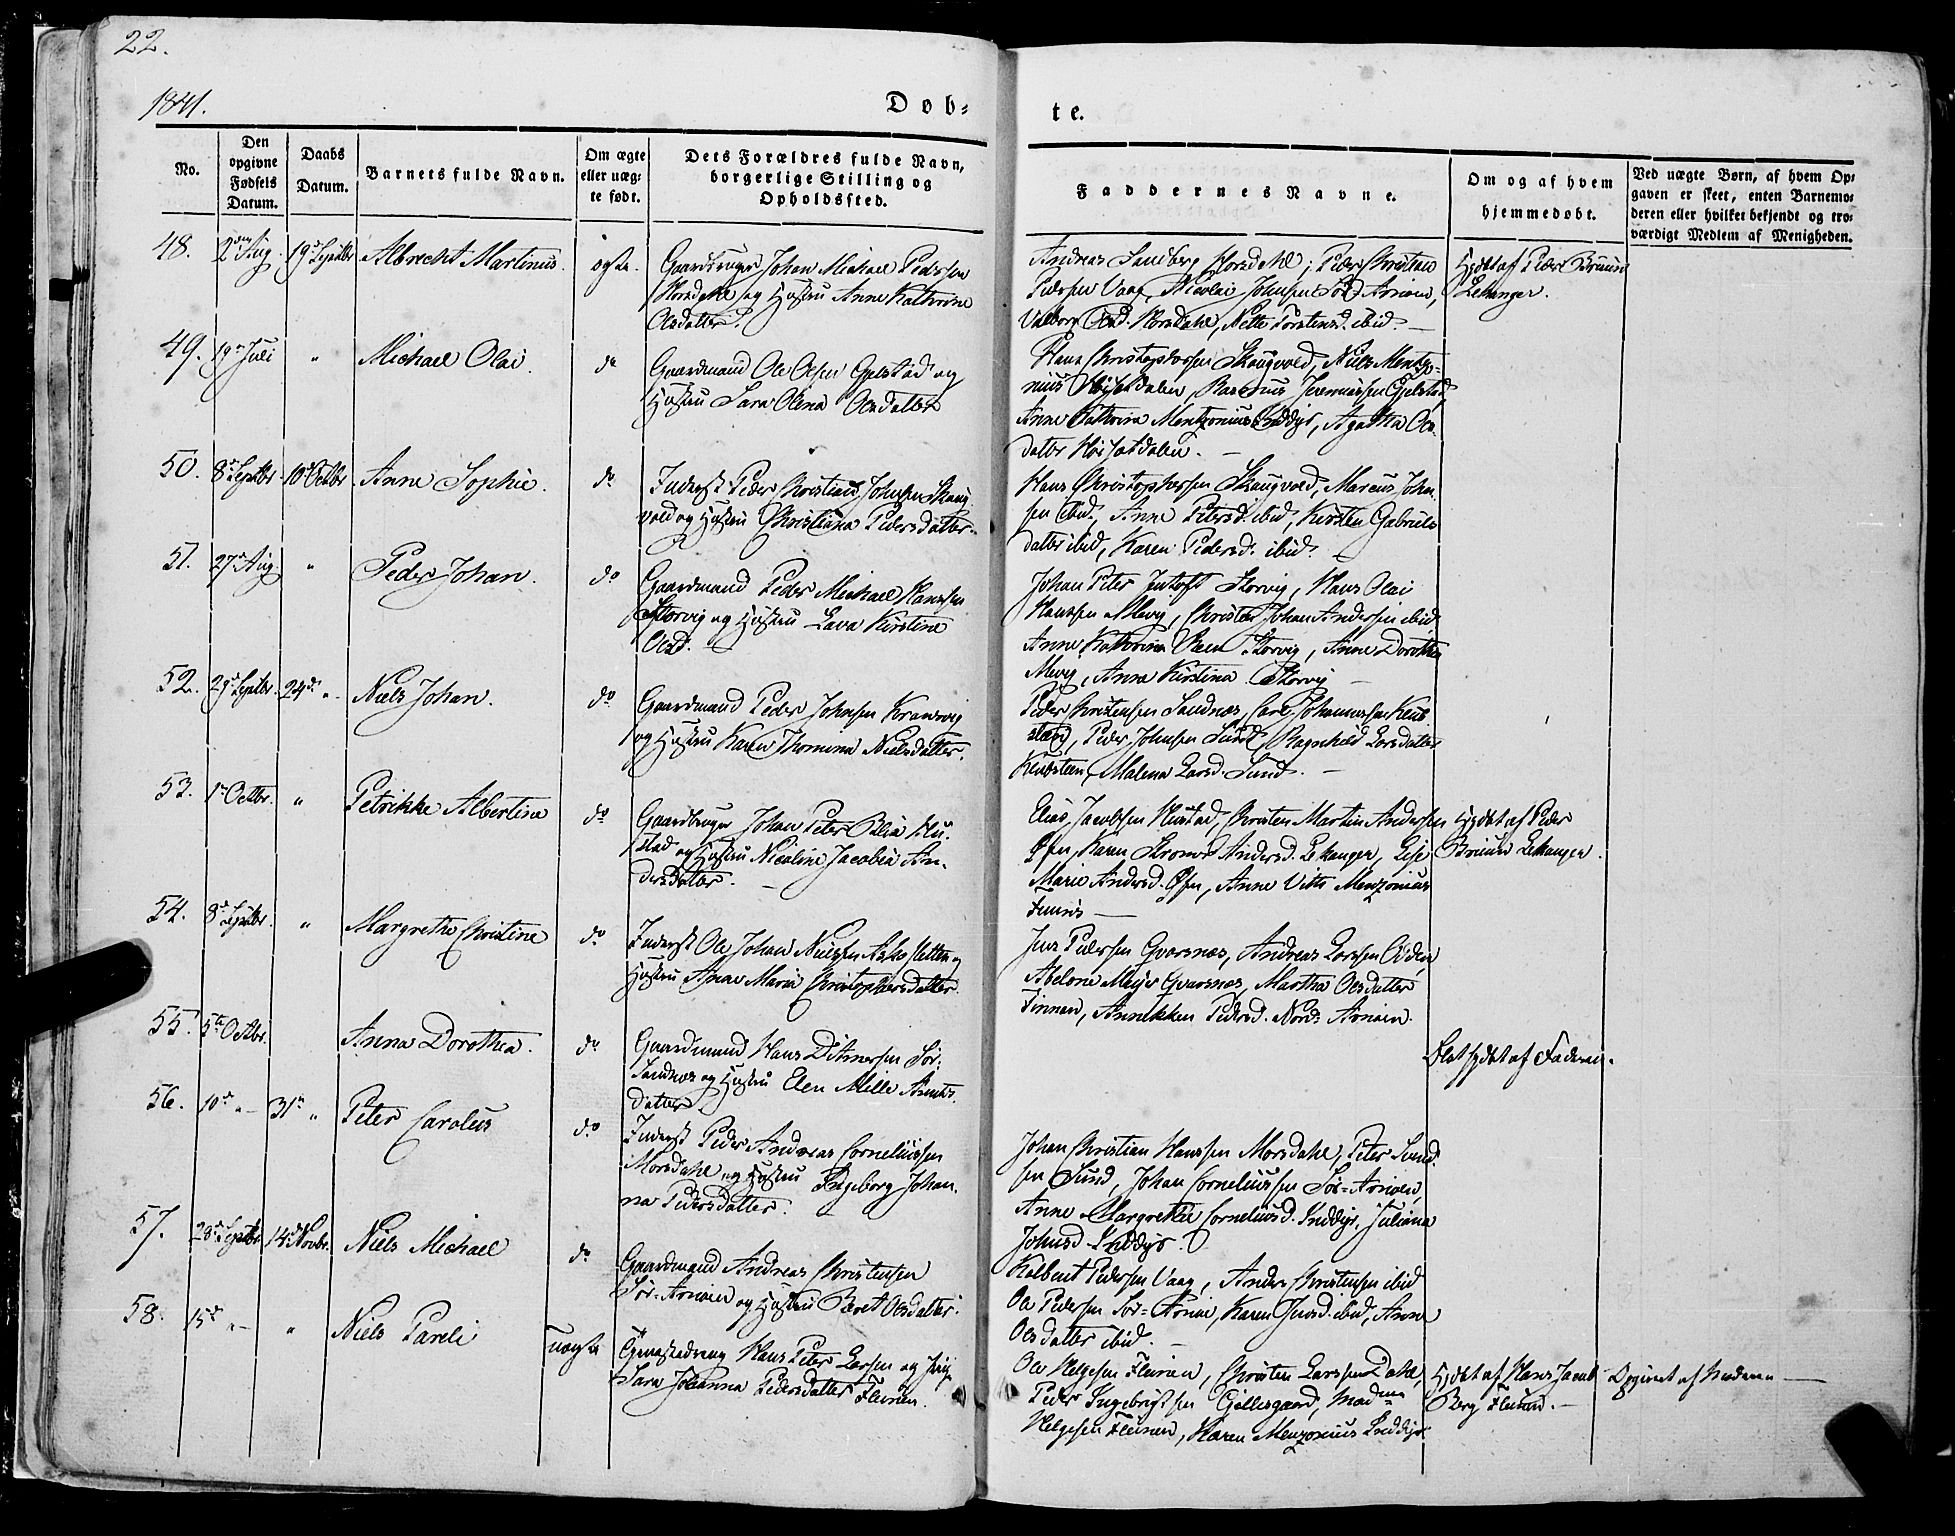 22.
1841.
Døb-
te.
No.
Den opgivne Fødsels Datum.
Daabs Datum.
Barnets fulde Navn.
Om ægte eller uægte født.
Dets Forældres fulde Navn, borgerlige Stilling og Opholdssted.
Faddernes Navne.
Om og af hvem hjemmedøbt.
Ved uægte Børn, af hvem Opgaven er skeet, enten Barnemoderen eller hvilket bekjendt og troværdigt Medlem af Menigheden.
48. 2den Aug. 19d Septbr Albrecht Martinus. ægte.
Gaardbruger Johan Michael Pedersen
Morsdahl og Hustru Anne Kathrine
Olsdatter.
Andreas Sandberg Morsdahl; Peder Christian
Pedersen Vaag, Nicolai Johnsen Sør Arnøen,
Valborg Olsd. Morsdahl, Nette Torstensd. ibid. —
Hjdbt af Peder Bruun
Lekanger.
49. 19n Juli " Michael Olai. do
Gaardmand Ole Olsen Gjelstad og
Hustru Sara Olena Olsdatter
Hans Christophersen Skaugvold, Niels Mentzo-
nius Høisetdalen, Rasmus Jeremiassen Gjelstad,
Anne Cathrina Mentzonius Inddyr, Agatha Ols-
datter Høisetdalen. —
50. 8d Septbr. 10d Octbr. Anne Sophie. do
Inderst Peder Christian Johnsen Skaug
vold og Hustru Christiana Pedersdatter.
Hans Christophersen Skaugvold, Marcus John-
sen ibid., Anne Petersd. ibid, Kirsten Gabriels
datter ibid, Karen Pedersd. ibid.
51. 27n Aug. " Peder Johan. do
Gaardmand Peder Michael Hanssen
Storvig og Hustru Lava Kirstine
Olsd.
Johan Peter Jentoft Storvig, Hans Olai
Hanssen Mevig, Christen Johan Andersen ibid
Anne Kathrina Storvig, Anne Dorothea
Mevig, Anne Kirstina Storvig —
52. 29d Septbr. 24d " Niels Johan. do
Gaardmand Peder Johnsen Kransvig
og Hustru Karen Thomina Nielsdatter.
Peder Christensen Sandnæs, Carl Johannessen Kleub-
steen, Peder Johnsen Sund, Ragnhild Larsdatter
Kleubsteen, Malena Larsd. Sund. —
53. 1n Octbr. " Petrikke Albertine do
Gaardbruger Johan Peter Blix Hu-
stad og Hustru Nicoline Jacobea An-
dersdatter. —
Elias Jacobsen Hustad, Christen Martin Andersen
Øsen, Karen Andersd. Lekanger, Lise
Marie Andersd. Øsen, Anne Vitte Menzonius
Fuurø —
Hjdbt af Peder
Bruun Lekanger.
54. 8d Septbr. " Margrethe Christine do
Inderst Ole Johan Nielsen Askesletten og
Hustru Anne Maria Christophersdatter.
Jens Pedersen Qvarsnæs, Andreas Larssen Odden,
Abelone Meyer Qvarsnæs, Martha Olsdatter
Finnen, Annikken Pedersd. Nord Arnøen.
55. 5te Octbr. Anna Dorothea. do
Gaardmand Hans Ditmersen Sør-
Sandnæs og Hustru Elen Mille Arents-
datter
Blot hjdbt af Faderen.
56. 10d " — 31n " Peter Carolus do
Inderst Peder Andreas Corneliussen
Morsdahl og Hustru Ingeborg Johan-
na Pedersdatter.
Johan Christian Hanssen Morsdahl, Peter Svend-
sen Sund, Johan Corneliussen Sør-Arnøen,
Anne Margrethe Corneliusd. Inddyr, Juliana
Johnsd. Inddyr.
57. 28d Septbr 14d Novbr. Niels Michael do
Gaardmand Andreas Christensen
Sør-Arnøen og Hustru Beret Olsdatter.
Kolbent Pedersen Vaag, Anders Christensen ibid
Ole Pedersen Sør-Arnøe, Karen Jensd. ibid, Anne
Olsdatter ibid. —
58. 15d " — " Niels Pareli uægte
Gjenstedreng Hans Peter Larsen og Pige
Sara Johanna Pedersdatter Fleinen.
Ole Helgesen Fleinen, Christen Larssen Dahl,
Peder Ingebrigtsen Gjellesgaard, Madme
Helgesen Fleinen, Karen Menzonius Inddyr.
Hjdbt af Hans Jacob
Berg Fleinen. —
Opgivet af Moderen —